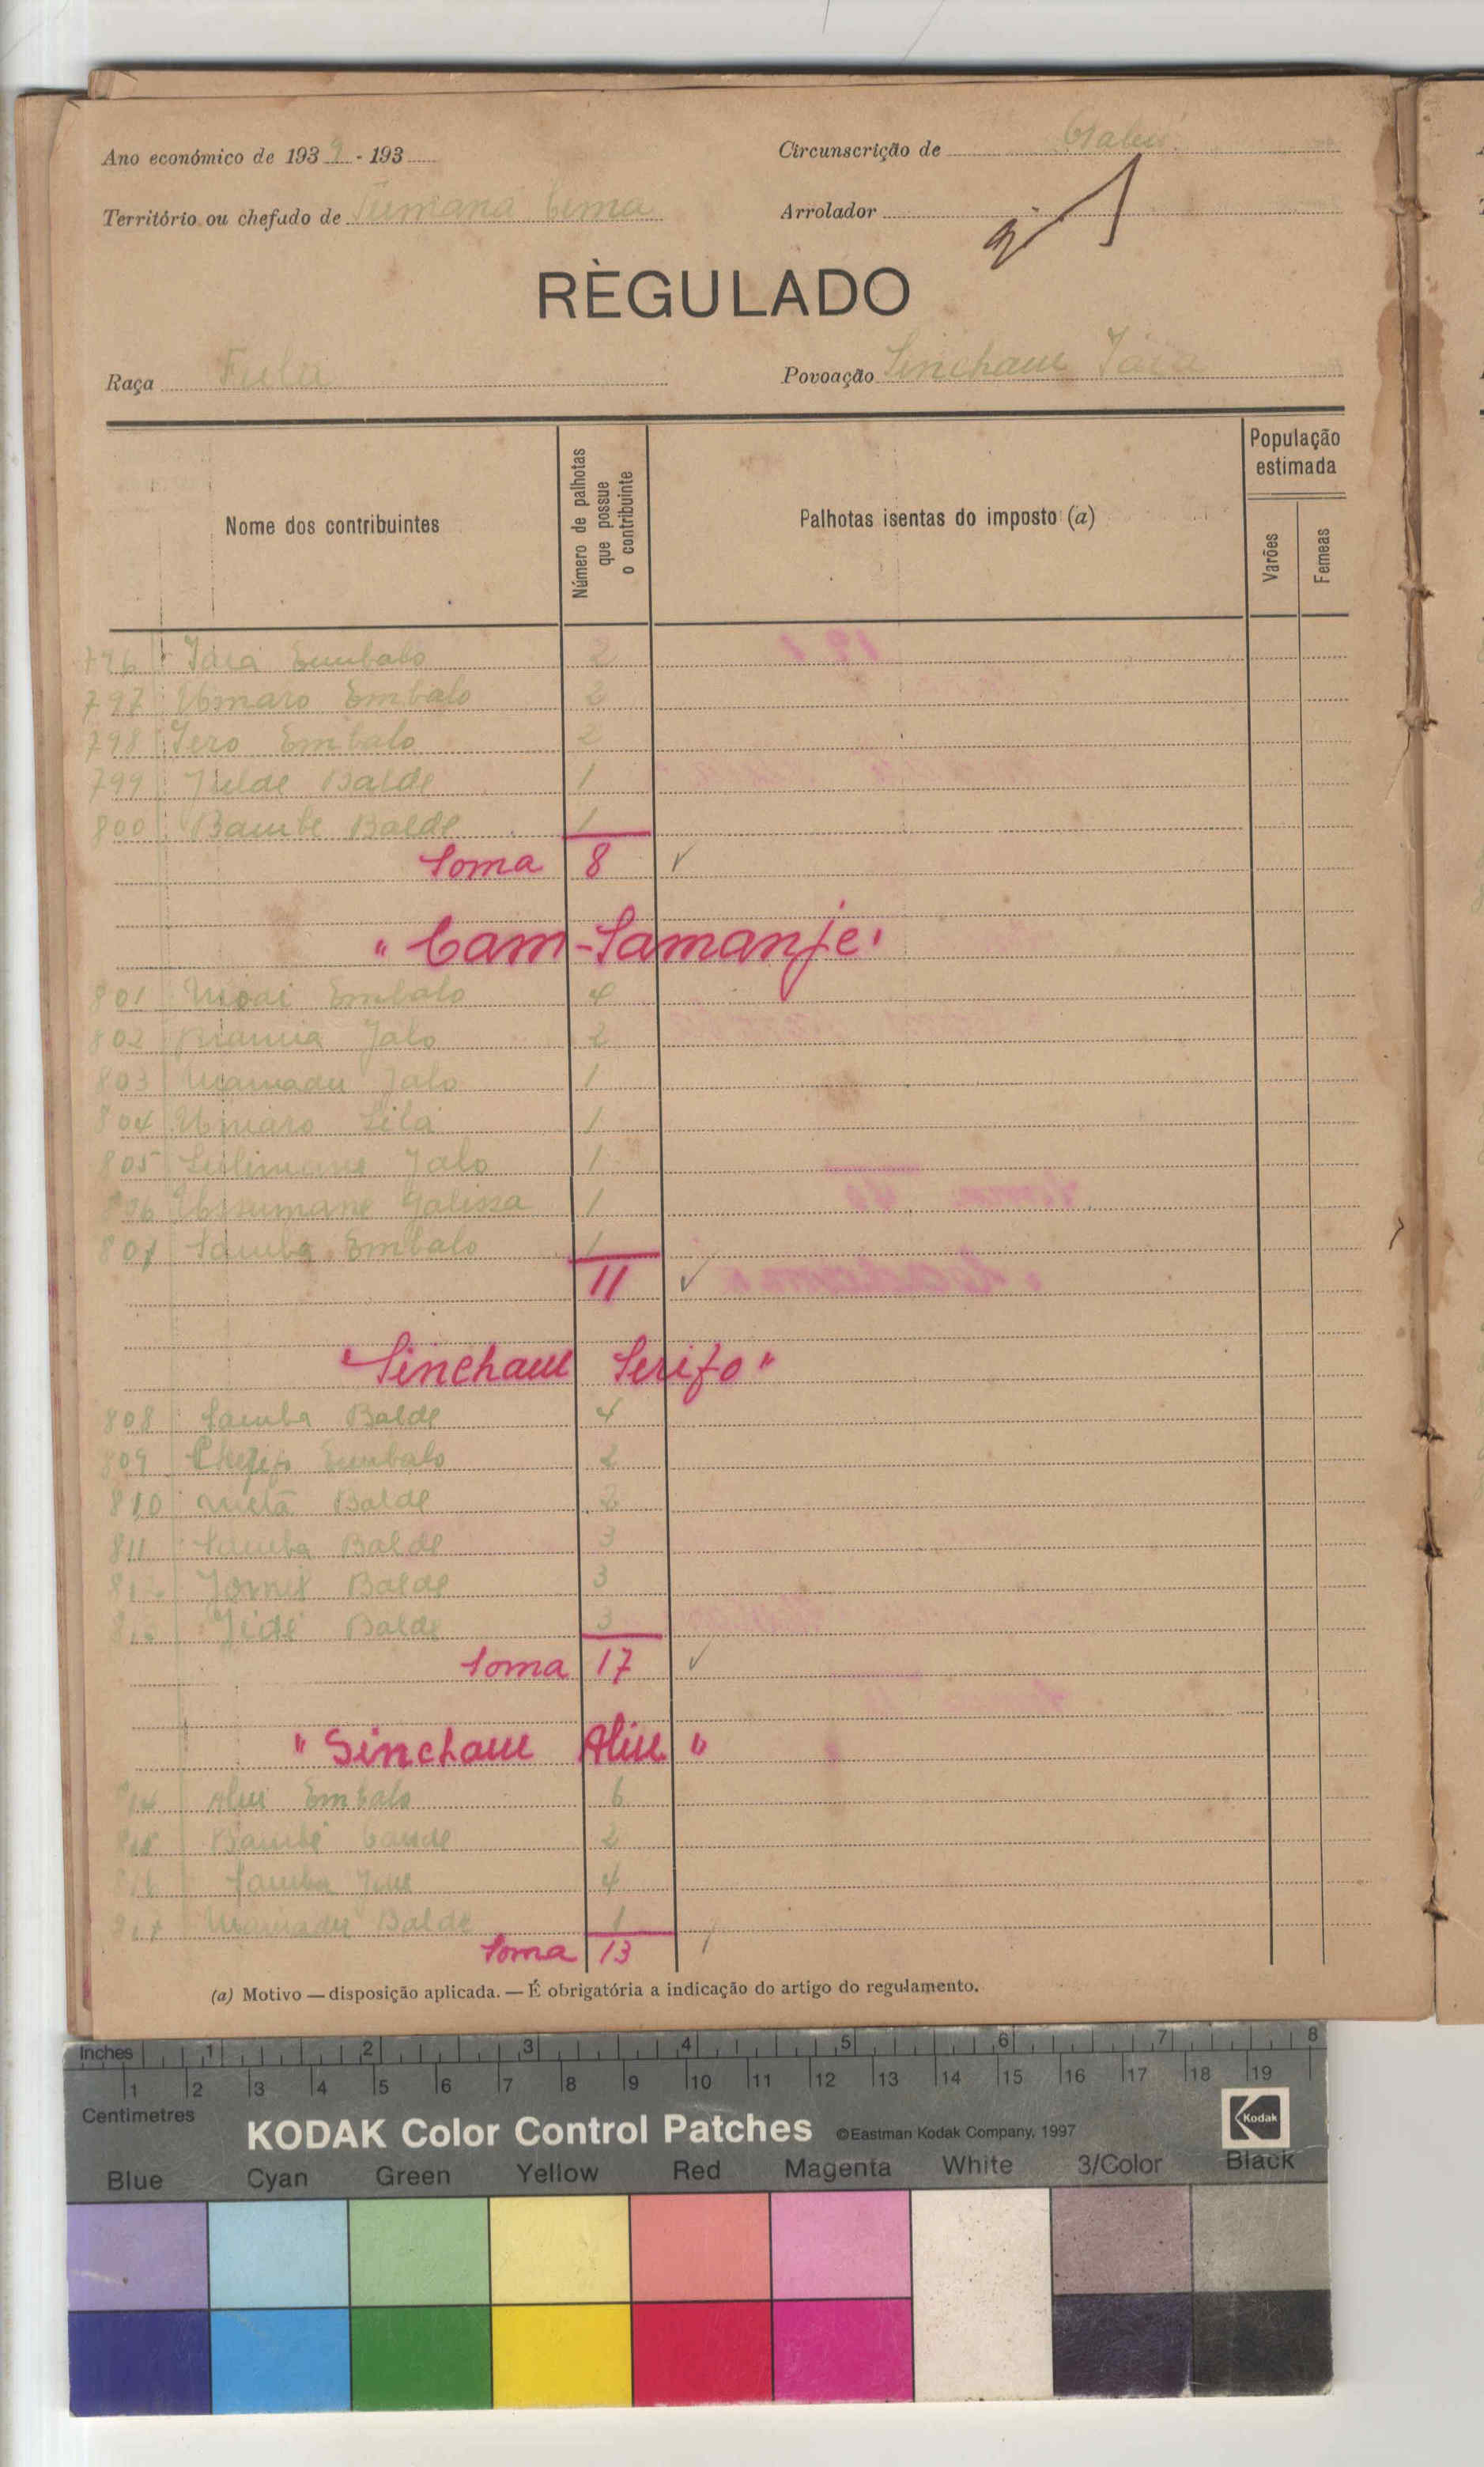 Ano económico de 1939 - 193
Circunscrição de Gabú
Território ou chefado de Tumaná Cima
Arrolador
RÈGULADO
Raça Fula
Povoação Sincham Iáiá
Nome dos contribuintes
Número de palhotas que possue o contribuinte
Palhotas isentas do imposto (a)
População estimada
Varões
Femeas
796 Iaia Embalo 2
797 Umaro Embalo 2
798 Iero Embalo 2
799 Julde Balde 1
800 Bambe Balde 1
Soma 8
"Cam-Samanje"
801 Embalo 4
802 Jalo 2
803 Mamadu Jalo 1
804 Umaro 1
805 Sulimane Jalo 1
806 Ussumane Galissa 1
807 Samba Embalo 1
11
"Sincham Serifo"
808 Samba Balde 4
809 Embalo 2
810 Balde 2
811 Samba Balde 3
812 Balde 3
813 Balde 3
Soma 17
"Sincham Aliu"
814 Aliu Embalo 6
815 Bambé Cande 2
816 Samba 4
817 Mamadu Balde 1
Soma 13
(a) Motivo — disposição aplicada. — É obrigatória a indicação do artigo do regulamento.
Inches 1 2 3 4 5 6 7 8
1 2 3 4 5 6 7 8 9 10 11 12 13 14 15 16 17 18 19
Centimetres
KODAK Color Control Patches ©Eastman Kodak Company, 1997 Kodak
Blue Cyan Green Yellow Red Magenta White 3/Color Black